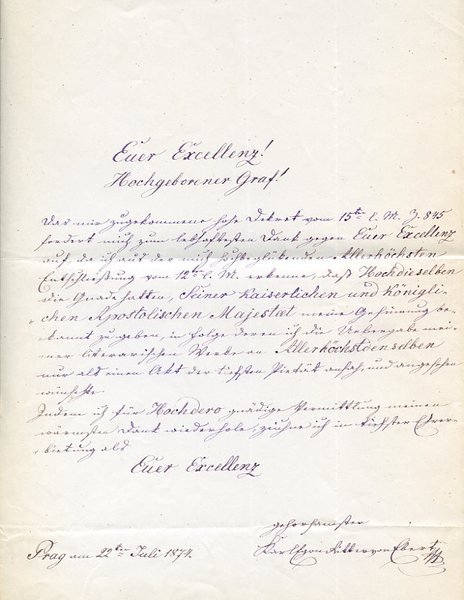 Euer Excellenz!
Hochgeborener Graf!
Das mir zugekommene hohe Dekret vom 15ten l. M. Z. 845
fordert mich zum lebhaftesten Dank gegen Euer Excellenz
auf, da ich aus der mich hochbeglückenden Allerhöchsten
Entschließung vom 12ten l. M. erkenne, daß Hochdieselben
die Gnade hatten, Seiner Kaiserlichen und Königli-
chen Apostolischen Majestaet meine Gesinnung be-
kannt zu geben, in folge deren ich die Uebergabe mei-
ner literarischen Werke an Allerhöchstdenselben
nur als einen Akt der tiefsten Pietät ansah, und angesehen
wünschte.
Indem ich für Hochdero gnädige Vermittlung meinen
wärmsten Dank wiederhole, zeichne ich in tiefster Ehrer-
bietung als
Euer Excellenz
gehorsamster
Prag am 22ten Juli 1874. Karl Egon Ritter von Ebert